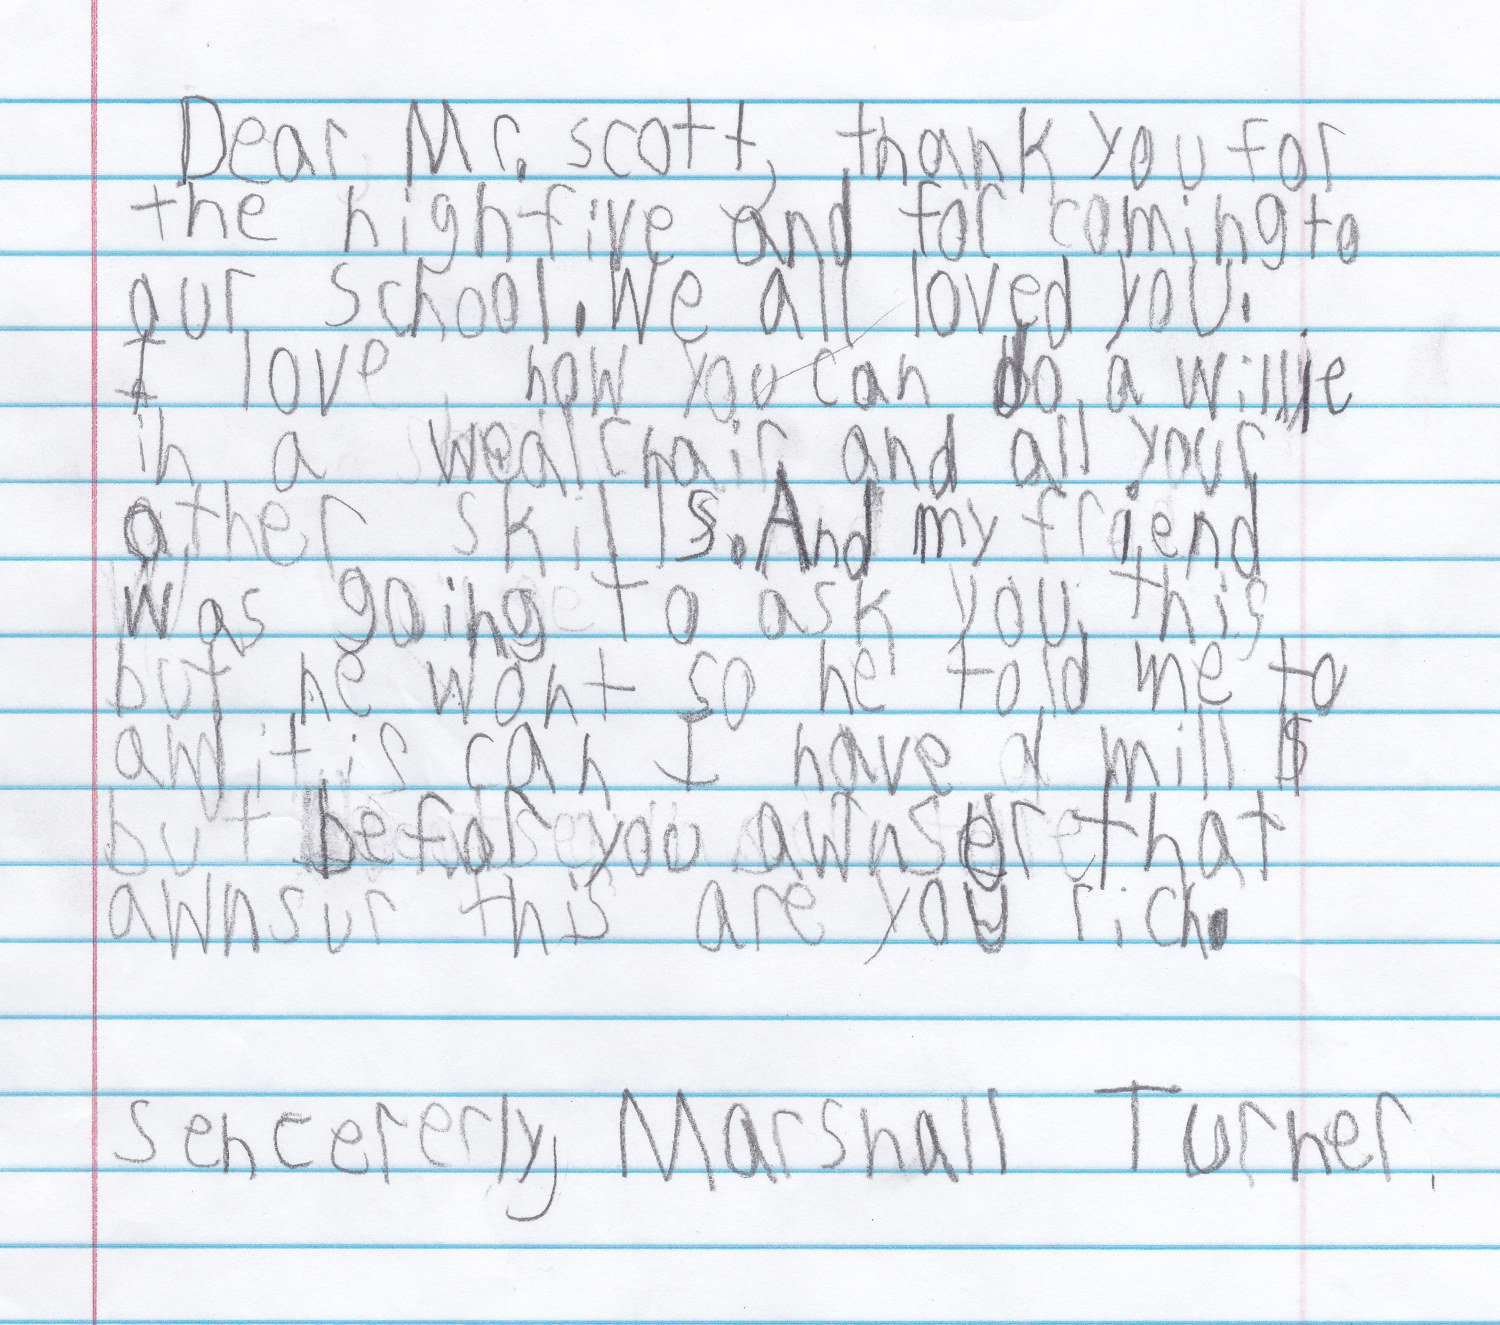 Dear Mr. scott, thank you for
the highfive and for coming to
our school. We all loved you.
I love how you can do a willie
in a wealchair and all your
other skills. And my friend
was going to ask you this
but he wont so he told me to
and it is can I have a mill $
but befor you awnser that
awnsur this are you rich.
sencererly, Marshall Turner.